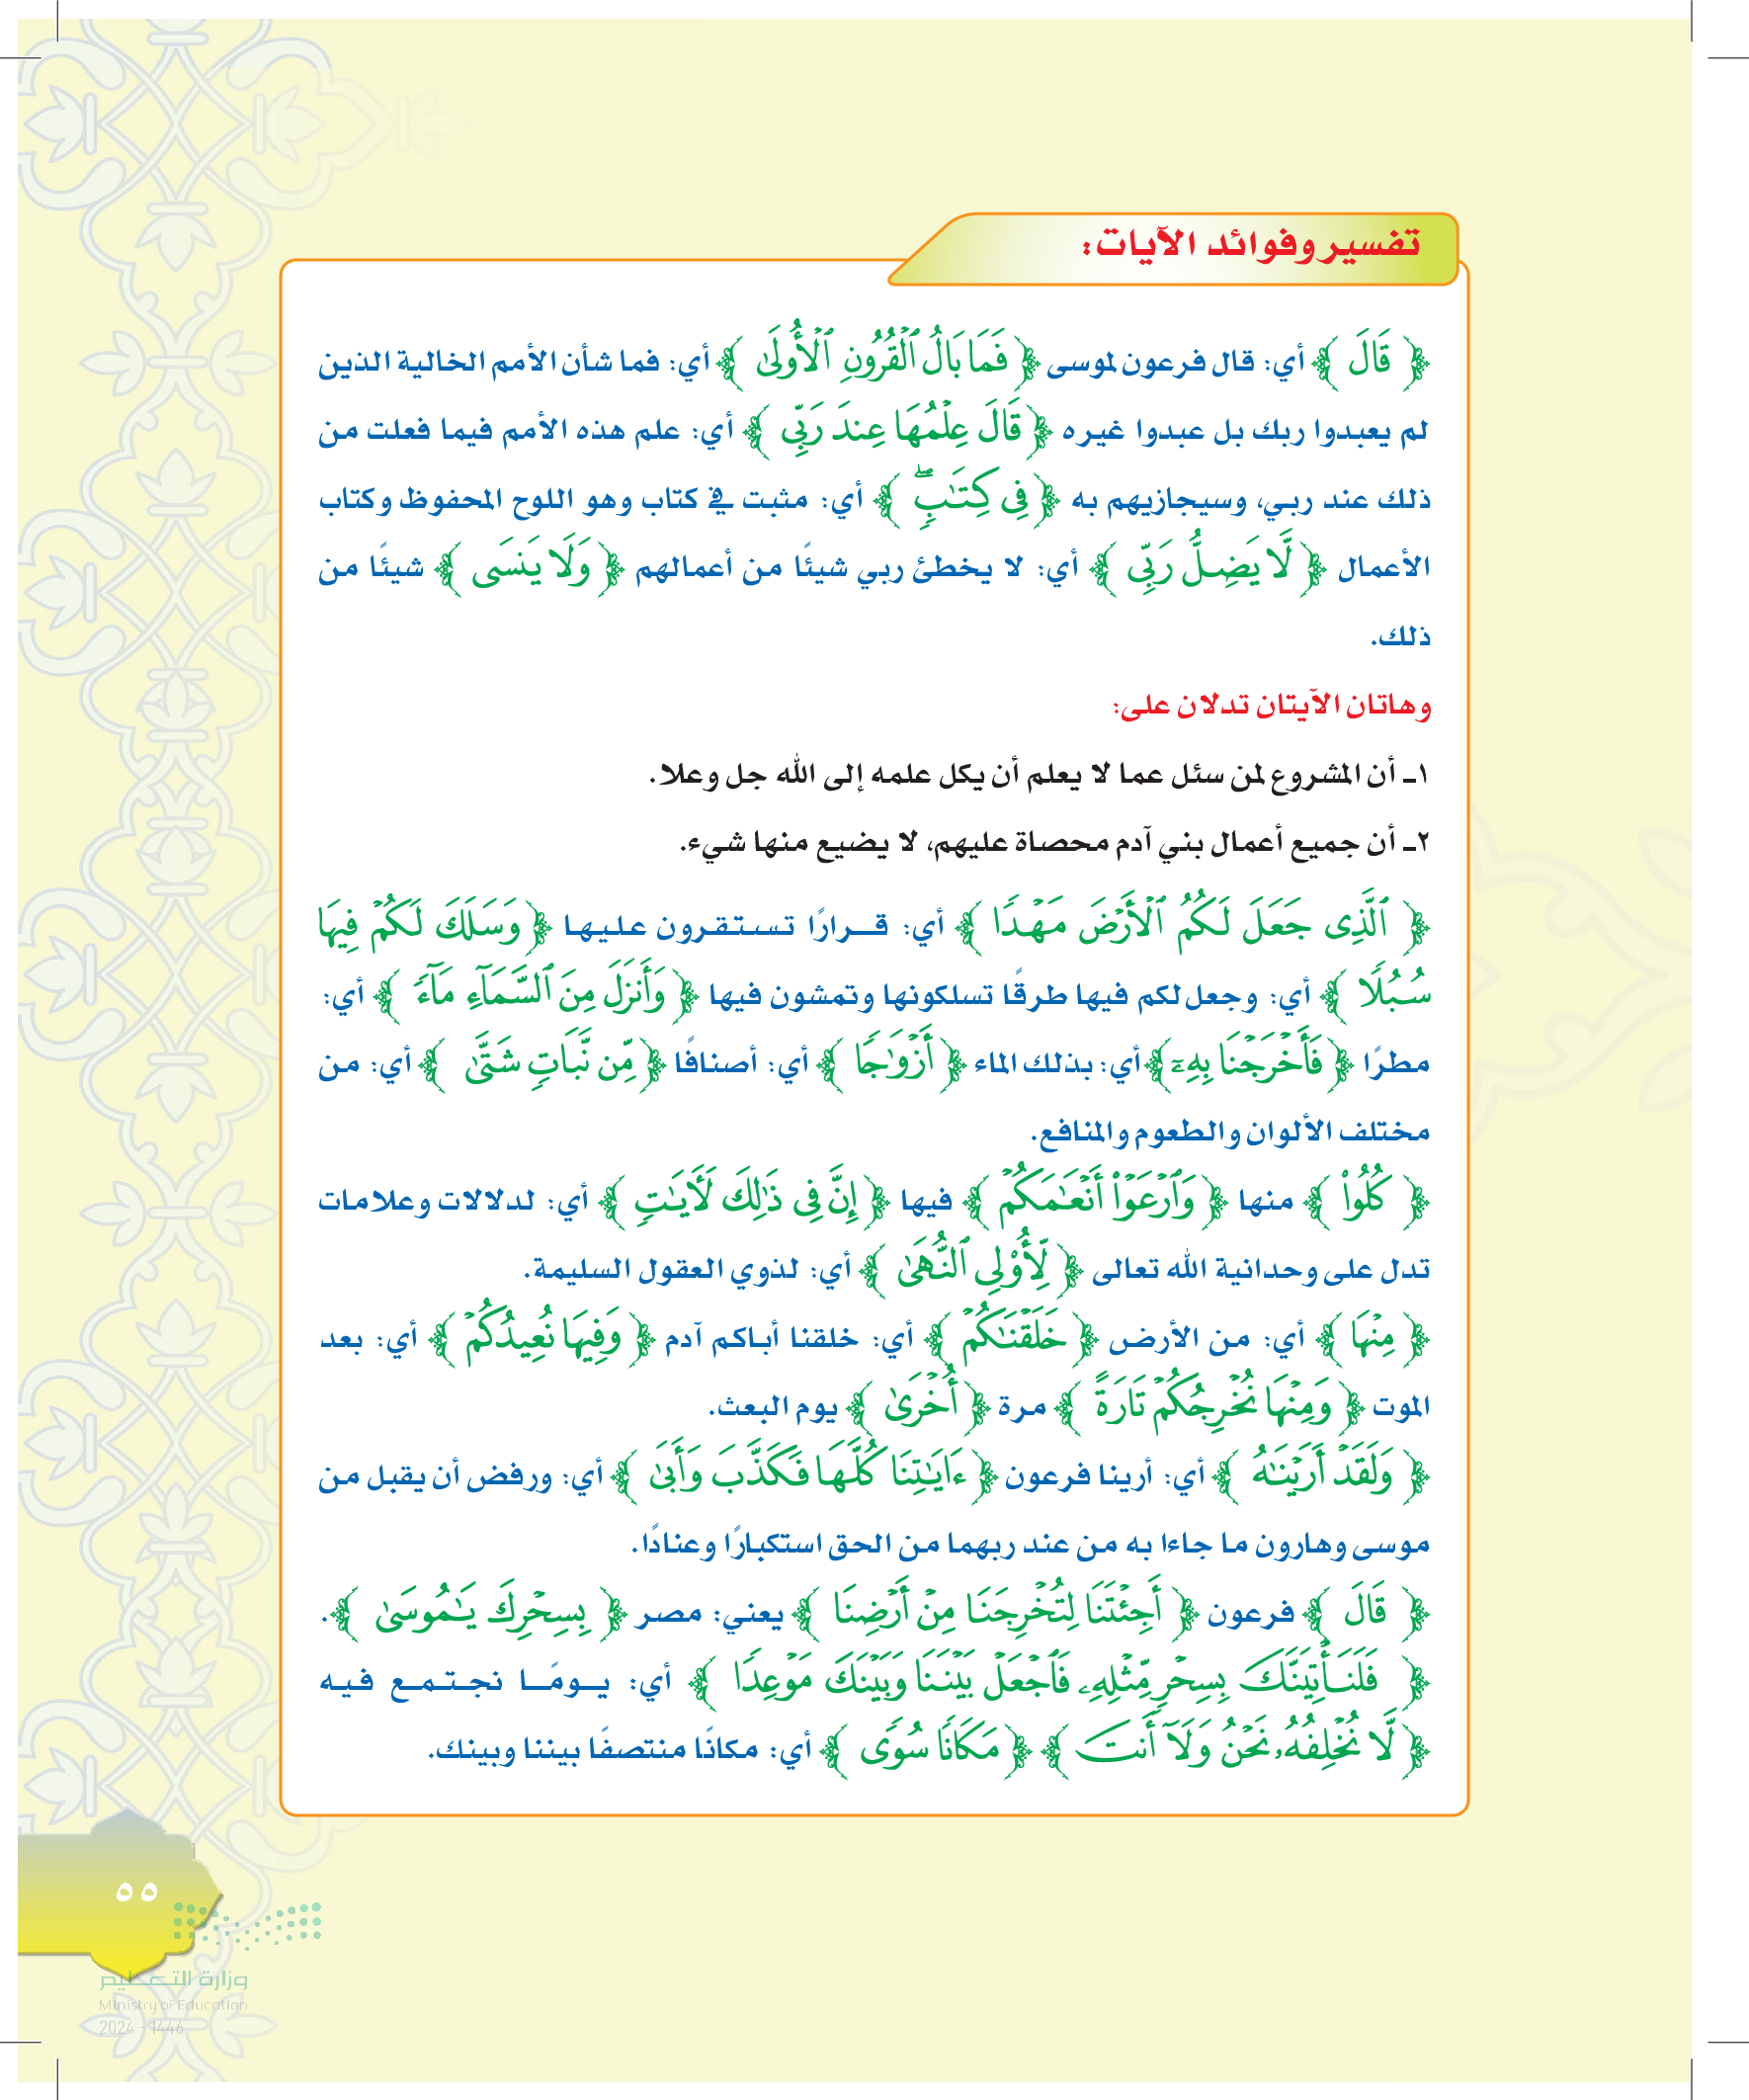 تفسير وفوائد الآيات:
﴿ قَالَ ﴾ أي: قال فرعون لموسى ﴿ فَمَا بَالُ ٱلْقُرُونِ ٱلْأُولَىٰ ﴾ أي: فما شأن الأمم الخالية الذين
لم يعبدوا ربك بل عبدوا غيره ﴿ قَالَ عِلْمُهَا عِندَ رَبِّى ﴾ أي: علم هذه الأمم فيما فعلت من
ذلك عند ربي، وسيجازيهم به ﴿ فِى كِتَـٰبٍۖ ﴾ أي: مثبت في كتاب وهو اللوح المحفوظ وكتاب
الأعمال ﴿ لَّا يَضِلُّ رَبِّى ﴾ أي: لا يخطئ ربي شيئًا من أعمالهم ﴿ وَلَا يَنسَى ﴾ شيئًا من
ذلك.
وهاتان الآيتان تدلان على:
١ـ أن المشروع لمن سئل عما لا يعلم أن يكل علمه إلى الله جل وعلا.
٢ـ أن جميع أعمال بني آدم محصاة عليهم، لا يضيع منها شيء.
﴿ ٱلَّذِى جَعَلَ لَكُمُ ٱلْأَرْضَ مَهْدًا ﴾ أي: قــرارًا تستقرون عليها ﴿ وَسَلَكَ لَكُمْ فِيهَا
سُبُلًا ﴾ أي: وجعل لكم فيها طرقًا تسلكونها وتمشون فيها ﴿ وَأَنزَلَ مِنَ ٱلسَّمَآءِ مَآءً ﴾ أي:
مطرًا ﴿ فَأَخْرَجْنَا بِهِۦٓ ﴾ أي: بذلك الماء ﴿ أَزْوَٰجًا ﴾ أي: أصنافًا ﴿ مِّن نَّبَاتٍ شَتَّىٰ ﴾ أي: من
مختلف الألوان والطعوم والمنافع.
﴿ كُلُوا۟ ﴾ منها ﴿ وَٱرْعَوْا۟ أَنْعَـٰمَكُمْ ﴾ فيها ﴿ إِنَّ فِى ذَٰلِكَ لَـَٔايَـٰتٍ ﴾ أي: لدلالات وعلامات
تدل على وحدانية الله تعالى ﴿ لِّأُو۟لِى ٱلنُّهَىٰ ﴾ أي: لذوي العقول السليمة.
﴿ مِنْهَا ﴾ أي: من الأرض ﴿ خَلَقْنَـٰكُمْ ﴾ أي: خلقنا أباكم آدم ﴿ وَفِيهَا نُعِيدُكُمْ ﴾ أي: بعد
الموت ﴿ وَمِنْهَا نُخْرِجُكُمْ تَارَةً ﴾ مرة ﴿ أُخْرَىٰ ﴾ يوم البعث.
﴿ وَلَقَدْ أَرَيْنَـٰهُ ﴾ أي: أرينا فرعون ﴿ ءَايَـٰتِنَا كُلَّهَا فَكَذَّبَ وَأَبَىٰ ﴾ أي: ورفض أن يقبل من
موسى وهارون ما جاءا به من عند ربهما من الحق استكبارًا وعنادًا.
﴿ قَالَ ﴾ فرعون ﴿ أَجِئْتَنَا لِتُخْرِجَنَا مِنْ أَرْضِنَا ﴾ يعني: مصر ﴿ بِسِحْرِكَ يَـٰمُوسَىٰ ﴾.
﴿ فَلَنَأْتِيَنَّكَ بِسِحْرٍ مِّثْلِهِۦ فَٱجْعَلْ بَيْنَنَا وَبَيْنَكَ مَوْعِدًا ﴾ أي: يــومًــا نجتمع فيه
﴿ لَّا نُخْلِفُهُۥ نَحْنُ وَلَآ أَنتَ ﴾ ﴿ مَكَانًا سُوًى ﴾ أي: مكانًا منتصفًا بيننا وبينك.
٥٥
وزارة التعليم
Ministry of Education
2024 - 1446